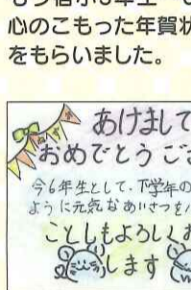 心のこもった年賀状
をもらいました。
あけまして
おめでとうご
今6年生として、下学年の
ように元気なあいさつを
ことしもよろしくお
します